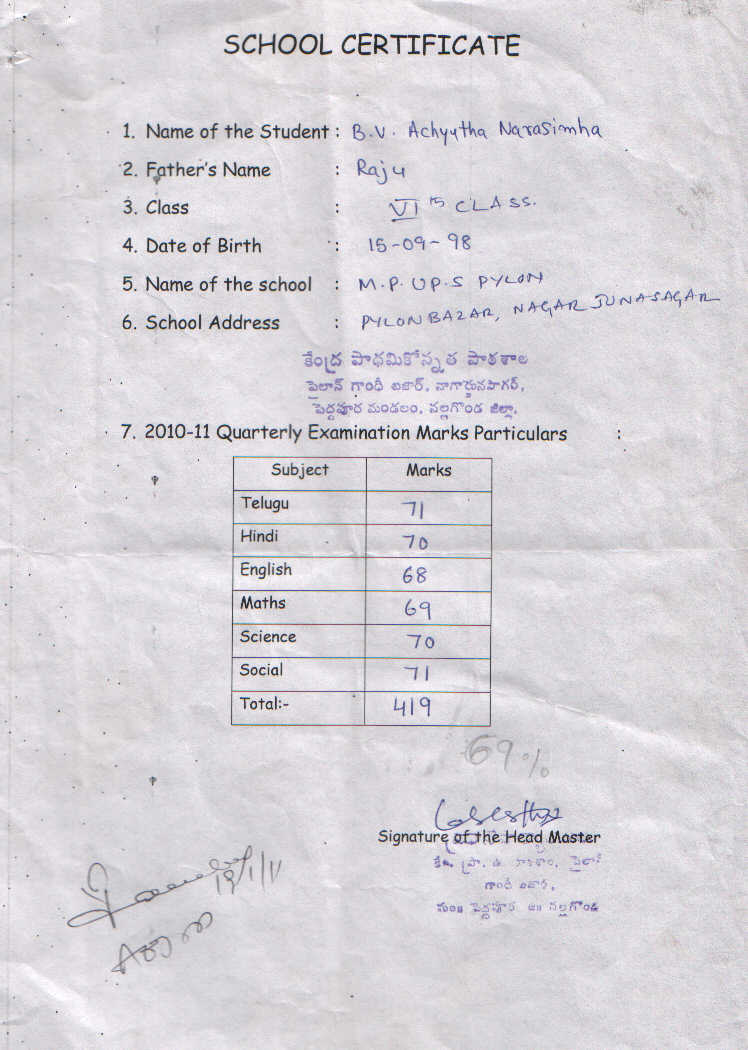 SCHOOL CERTIFICATE
1. Name of the Student : B.V. Achyutha Narasimha
2. Father's Name : Raju
3. Class : VI th CLASS.
4. Date of Birth : 15-09-98
5. Name of the school : M.P. UP.S PYLON
6. School Address : PYLON BAZAR, NAGARJUNASAGAR
కేంద్ర ప్రాధమికోన్నత పాఠశాల
పైలాన్ గాంధీ బజార్, నాగార్జునసాగర్,
పెద్దవూర మండలం, నల్లగొండ జిల్లా.
7. 2010-11 Quarterly Examination Marks Particulars :
Subject Marks
Telugu 71
Hindi 70
English 68
Maths 69
Science 70
Social 71
Total:- 419
69%
Signature of the Head Master
కేం. ప్రా. ఉ. పాఠశాల, పైలాన్
గాంధీ బజార్,
మం॥ పెద్దవూర జి॥ నల్లగొండ
19/1/11